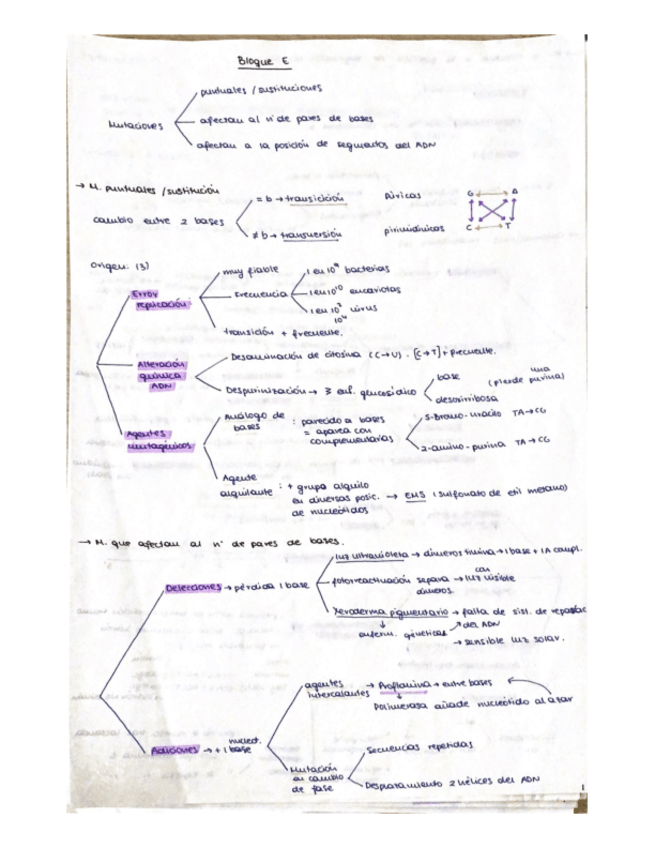 Bloque E
puntuales / sustituciones
Mutaciones
afectan al nº de pares de bases
afectan a la posición de segmentos del ADN
→ M. puntuales / sustitución
= b → transición
púricas
G A
cambio entre 2 bases
≠ b → transversión
pirimidínicas
C T
origen: (3)
muy fiable
1 en 10⁹ bacterias
Error
replicación
Frecuencia
1 en 10¹⁰ eucariotas
1 en 10³ virus
transición + frecuente.
Desaminación de citosina (C→U) . [C→T] + frecuente.
Alteración
química
ADN
Despurinización →
enl. glucosídico
base
(pierde una purina)
desoxirribosa
Agentes
mutagénicos
Análogo de
bases
: parecido a bases
= aparea con
complementarias
5-Bromo-uracilo TA→CG
2-amino-purina TA→CG
Agente
alquilante
: + grupo alquilo
en diversas posic. → EMS (sulfonato de etil metano)
de nucleótidos
→ M. que afectan al nº de pares de bases.
luz ultravioleta → dímeros timina → 1 base + 1A compl.
Delecciones → pérdida 1 base
fotorreactivación separa → con luz visible
dímeros
Xeroderma pigmentario → falta de sist. de reparac
del ADN
enferm. genéticas
→ sensible luz solar.
agentes
intercalantes
→ Proflamina → entre bases
Polimerasa añade nucleótido al azar
Adiciones → + 1 base
nucleot.
Secuencias repetidas
Mutación
en cambio
de fase
Desparatamiento 2 hélices del ADN